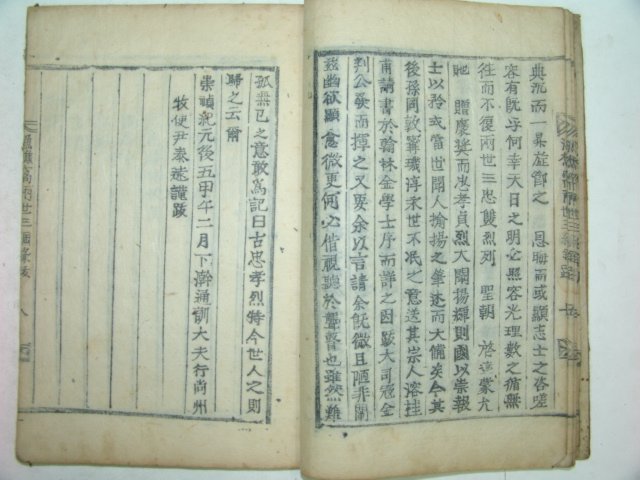 典況而一杲旌鄧之 恩晦而或顯志士之咨嗟
容有旣乎何幸天日之明必照容光理數之循無
往而不復兩世三忠雙烈列 聖朝 啓達蒙允
貤贈慶發而忠孝貞烈大闡揚輝則國以崇報
士以矜或當世聞人揄揚之筆述而大備矣今其
後孫岡敦馨璣淳來世不泯之意送其宗人溶桂
甫請書於翰林金學士序而詳之因跋大司寇金
判公發而揮之又要余以言請余旣微且陋非闡
玆幽欲顯愈微更何必借視聽於聾瞽也雖然難
孤無已之意敢爲記曰古忠孝烈特今世人之則
歸之云爾
崇禎紀元後五甲午二月下澣通訓大夫行尙州
牧使尹泰 謹跋
兩世三 跋 八